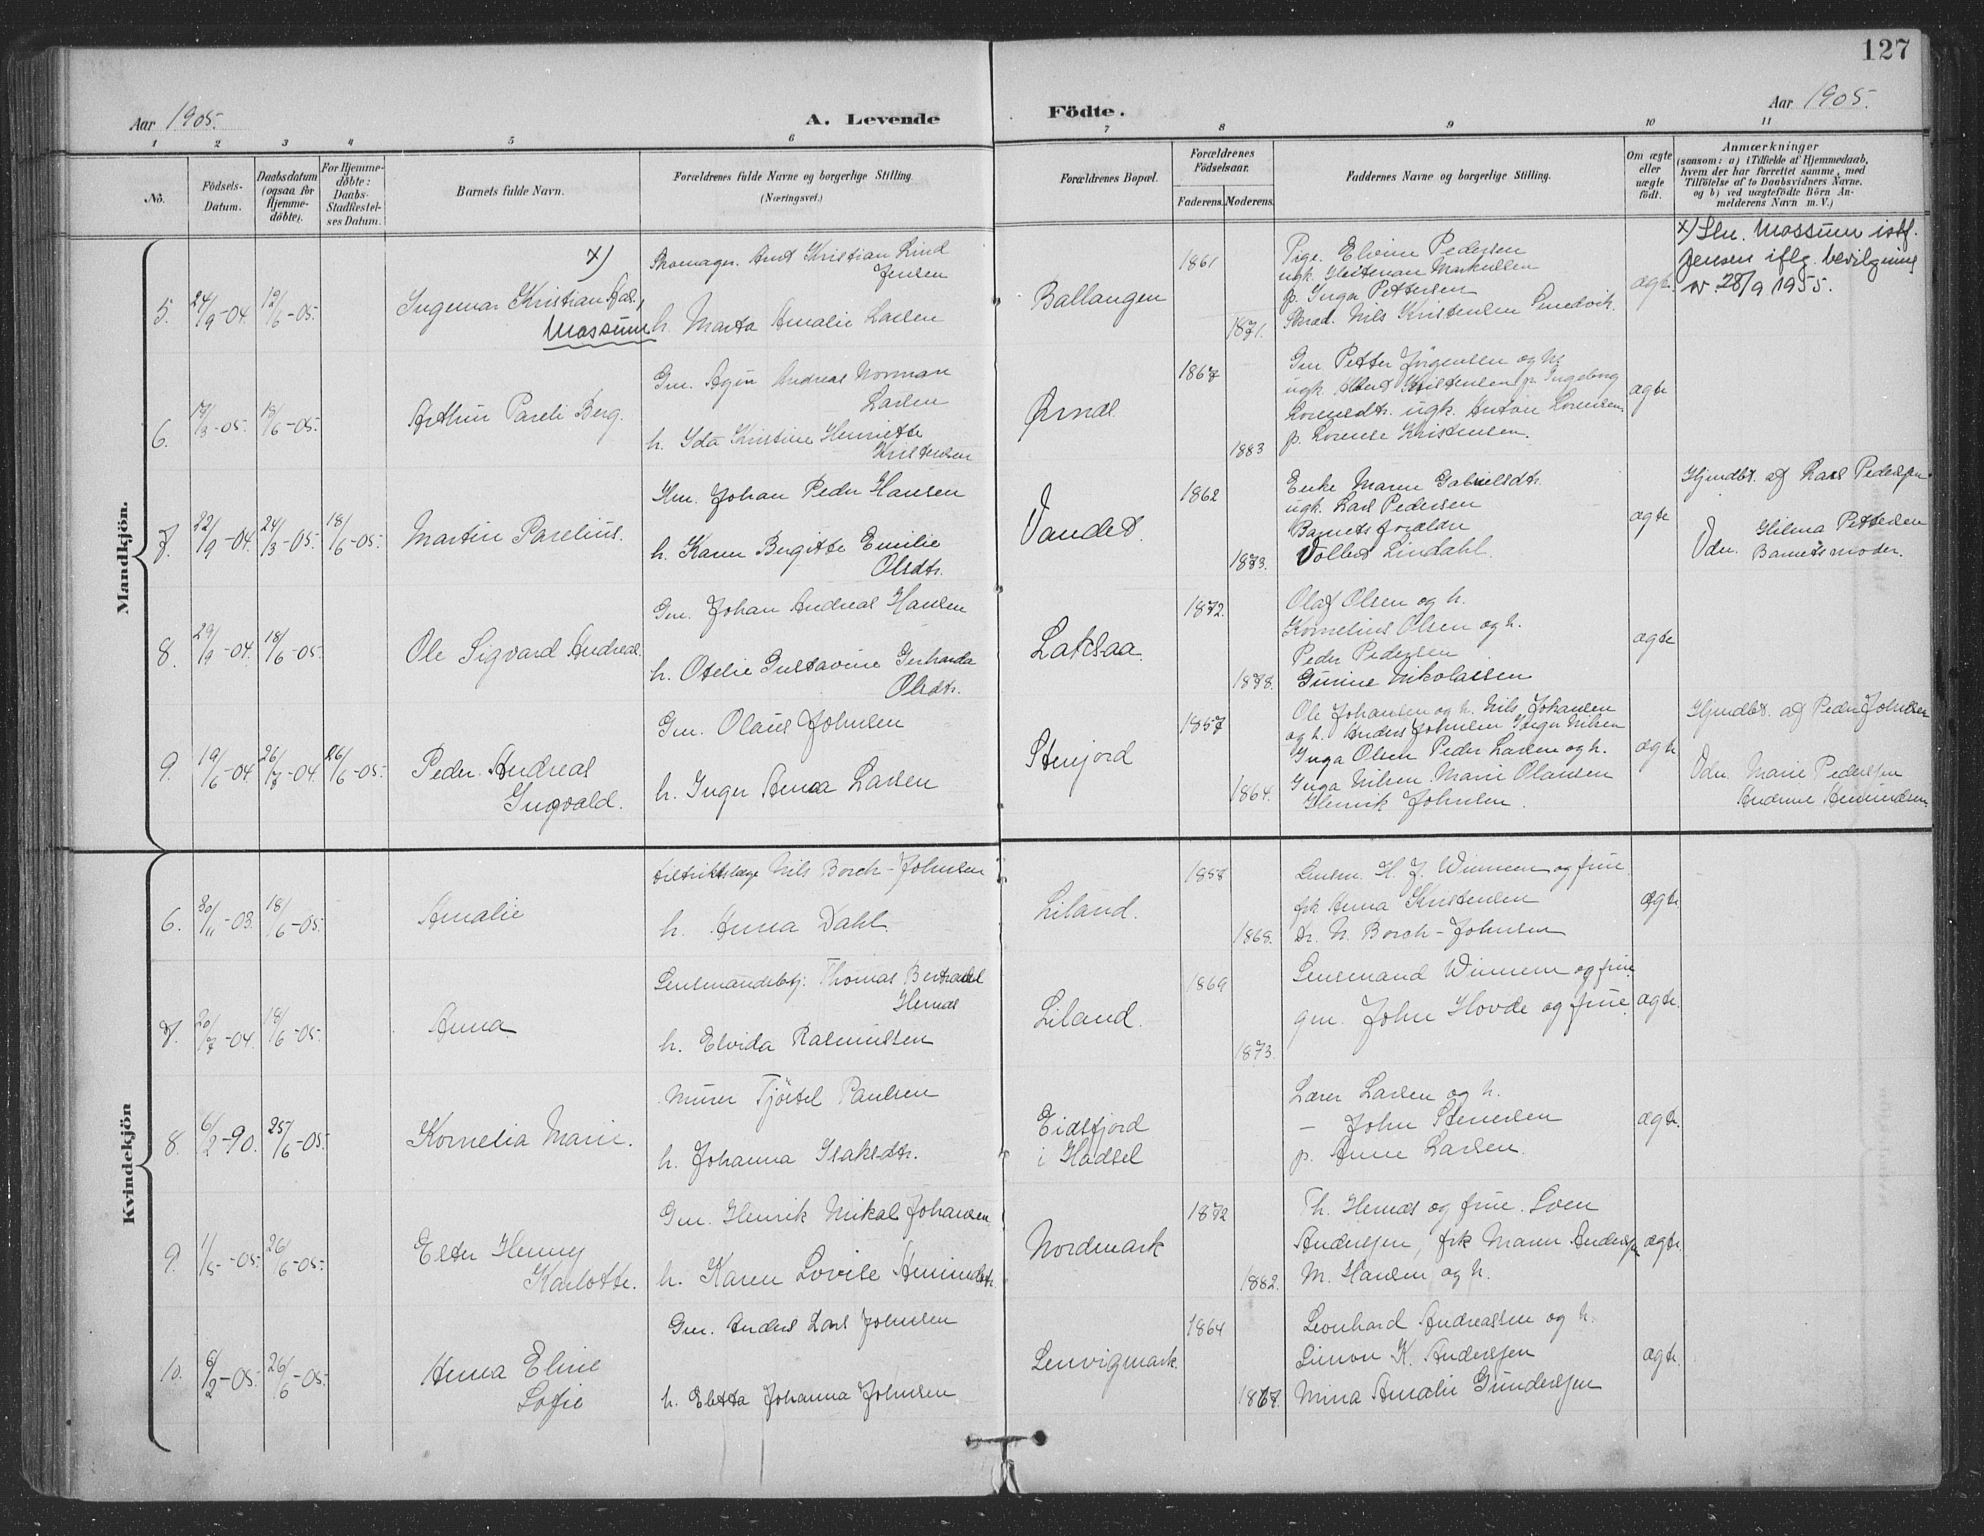 127
Aar 1905.
A. Levende
Födte.
Aar 1905.
1 2 3 4 5 6 7 8 9 10 11
No.
Födsels-
Datum.
Daabsdatum
(ogsaa for
Hjemme-
döbte).
For Hjemme-
döbte:
Daabs-
Stadfæstel-
ses Datum.
Barnets fulde Navn.
Forældrenes fulde Navne og borgerlige Stilling.
(Næringsvei.)
Forældrenes Bopæl.
Forældrenes
Födselsaar.
Faderens. Moderens.
Faddernes Navne og borgerlige Stilling.
Om ægte
eller
uægte
födt.
Anmærkninger
(saasom: a) i Tilfælde af Hjemmedaab,
hvem der har forrettet samme, med
Tilföielse af to Daabsvidners Navne,
og b) ved uægtefödte Börn An-
melderens Navn m. V.)
Mandkjön.
5. 24/9-04. 12/6-05.
x)
Ingemar Kristian
Mossum
Skomager. Arnt Kristian Lind
Jensen
h. Marta Amalie Larsen
Ballangen
1861
1871.
Pige. Eline Pedersen
p. Inga Pettersen
Skræd. Nils Kristensen Smedvik.
ægte
x) Sln. Mossum istf.
Jensen iflg. bevilgning
av 28/9 1955.
6. 18/6-05.
Arthur Pareli Berg.
Gm. Agin Andreas Norman
Larsen
h. Ida Kristine Henriette
Kristensen
Ørnes
1867
1883
Gm Petter Jørgensen og h.
ugk. Albert Kristensen p. Ingeborg
Lorensdtr. ugk. Anton Lorensen
p. Lorense Kristensen.
ægte
7. 22/9-04. 24/3-05. 18/6-05.
Martin Parelius.
Km. Johan Peder Hansen
h. Karen Bergitte Emilie
Olsdtr.
Vandet.
1862
1873.
Enke Maren Gabrielsdtr.
ugk. Lars Pedersen
Barnets forældre
Volbert Lindahl.
ægte
Hjmdbt. af Lars Pedersen
Vdn. Hilma Pettersen
Barnets moder.
8. 29/9-04. 18/6-05.
Ole Sigvard Andreas.
Gm. Johan Andreas Hansen
h. Otelie Gustavine Gerharda
Olsdtr.
Laksaa.
1872.
1878.
Olaf Olsen og h.
Kornelius Olsen og h.
Peder Pedersen
Gurine Nikolaisen
ægte
9. 19/6-04. 26/7-04 26/6-05.
Peder Andreas
Ingvald.
Gm. Olaus Johnsen
h. Inger Anna Larsen
Stenjord
1857
1864.
Ole Johansen og h. Nils Johansen
og h. Anders Johnsen Inger Nilsen
Inga Olsen Peder Larsen og h.
Inga Nilsen Marie Olausen
Henrik Johnsen.
ægte
Hjmdbt. af Peder Johnsen
Vdn. Marie Pedersen
Andrine Amundsen
Kvindekjön
6. 30/11-03. 18/6-05.
Amalie
distriktslæge Nils Borch-Johnsen
h. Anna Dahl.
Liland.
1858
1868.
Lensm. H. J. Winnem og frue.
frk Anna Kristensen
Dr. N. Borch-Johnsen
ægte.
7. 20/7-04. 18/6-05.
Anna
Lensmandsbtj. Thomas Bertheus
Hemes
h. Elvida Rasmussen
Liland.
1869
1873.
Lensmand Winnem og frue
gm. John Hovde og frue.
ægte.
8. 6/2-90. 25/6-05.
Kornelia Marie.
Murer Tjøstel Paulsen
h. Johanna Isaksdtr.
Eidsfjord
i Hadsel
Lærer Larsen og h.
— John Stenersen
p. Anne Larsen.
ægte.
9. 1/5-05. 26/6-05.
Ester Henny
Karlotte.
Gm. Henrik Mikal Johansen
h. Karen Lovise Amundsdtr.
Nordmark
1872
1882.
Th. Hemes og frue. Sven
Andersen, frk Maren Andersen
M. Hansen og h.
ægte.
10. 6/2-05. 26/6-05.
Anna Eline
Sofie
Gm. Anders Lars Johnsen
h. Eletta Johanna Johnsen
Lenvigmark.
1864
1867.
Leonhard Andreassen og h.
Simon K. Andersen
Mina Amalie Gundersen
ægte.